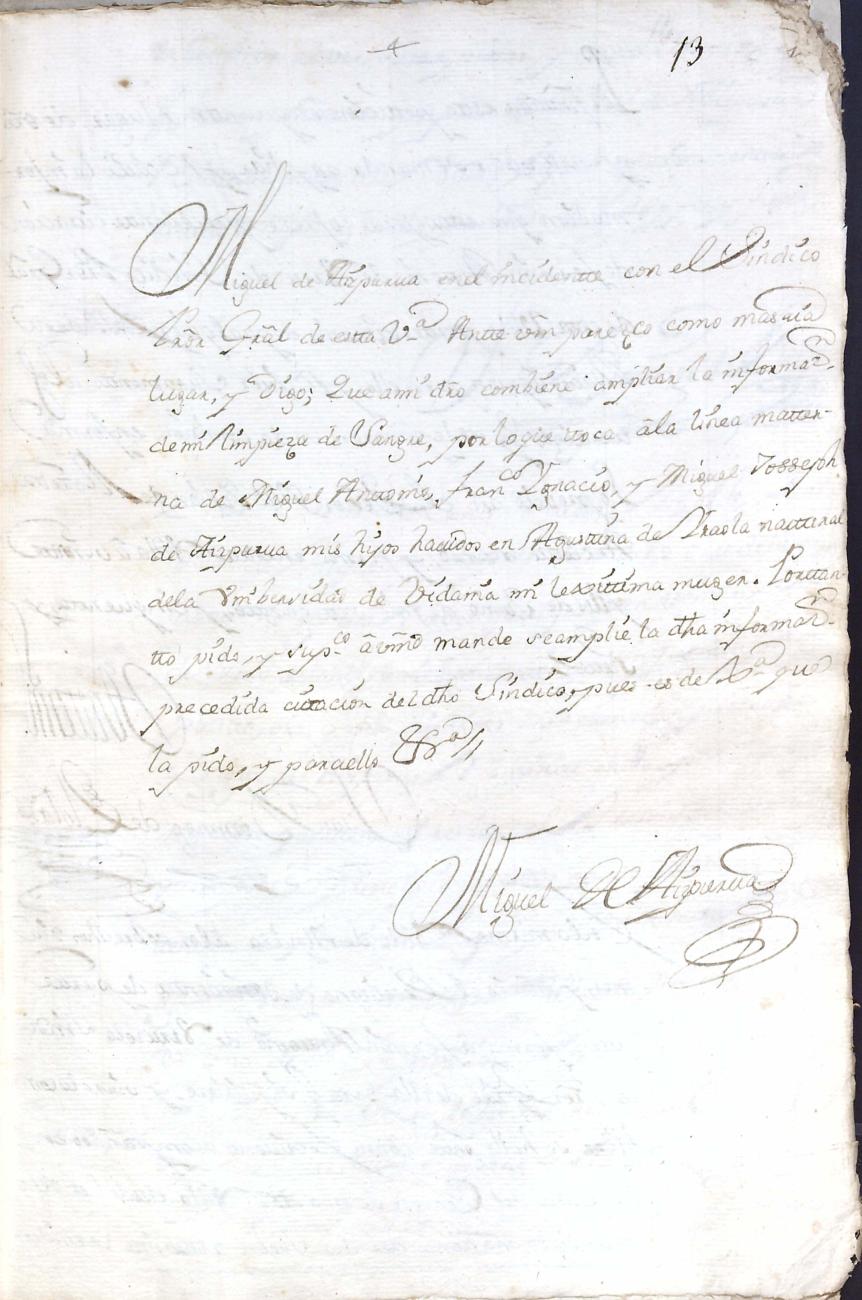 13
Miguel de Aizpurua en el incidentte con el Sindico
Pror Gräl de esta Vª Antte vm parezco como mas aia
lugar, y Digo; Que ami dr̃o combiene ampliar la informaon.
de mi limpieza de Sangre, por lo que ttoca âla linea matter-
na de Miguel Anttonio, Franco Ygnacio, y Miguel Josseph
de Aizpurua mis hijos havidos en Agustina de Yraola natural
dela Vnibersidad de Vidania mi lexittima muger. Porttan-
tto pido, y suppco â vmd mande se amplie la dha informaon.
precedida citacion del dho Sindico, pues es de Xª que
la pido, y para ello &ª//
Miguel de Aizpurua